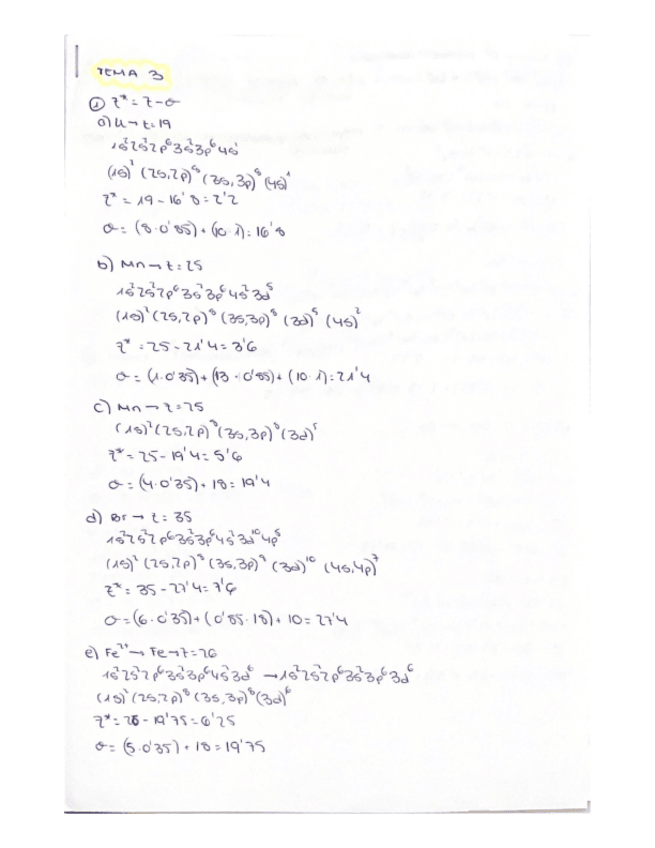 TEMA 3
① Z* = Z - σ
a) K → Z = 19
1s²2s²2p⁶3s²3p⁶4s¹
(1s)² (2s,2p)⁸ (3s,3p)⁸ (4s)¹
Z* = 19 - 16'8 = 2'2
σ = (8·0'85) + (10·1) = 16'8
b) Mn → Z = 25
1s²2s²2p⁶3s²3p⁶4s²3d⁵
(1s)² (2s,2p)⁸ (3s,3p)⁸ (3d)⁵ (4s)²
Z* = 25 - 21'4 = 3'6
σ = (1·0'35) + (13·0'85) + (10·1) = 21'4
c) Mn → Z = 25
(1s)² (2s,2p)⁸ (3s,3p)⁸ (3d)⁵
Z* = 25 - 19'4 = 5'6
σ = (4·0'35) + 18 = 19'4
d) Br → Z = 35
1s²2s²2p⁶3s²3p⁶4s²3d¹⁰4p⁵
(1s)² (2s,2p)⁸ (3s,3p)⁸ (3d)¹⁰ (4s,4p)⁷
Z* = 35 - 27'4 = 7'6
σ = (6·0'35) + (0'85·18) + 10 = 27'4
e) Fe²⁺ → Fe → Z = 26
1s²2s²2p⁶3s²3p⁶4s²3d⁶ → 1s²2s²2p⁶3s²3p⁶3d⁶
(1s)² (2s,2p)⁸ (3s,3p)⁸ (3d)⁶
Z* = 26 - 19'75 = 6'25
σ = (5·0'35) + 18 = 19'75